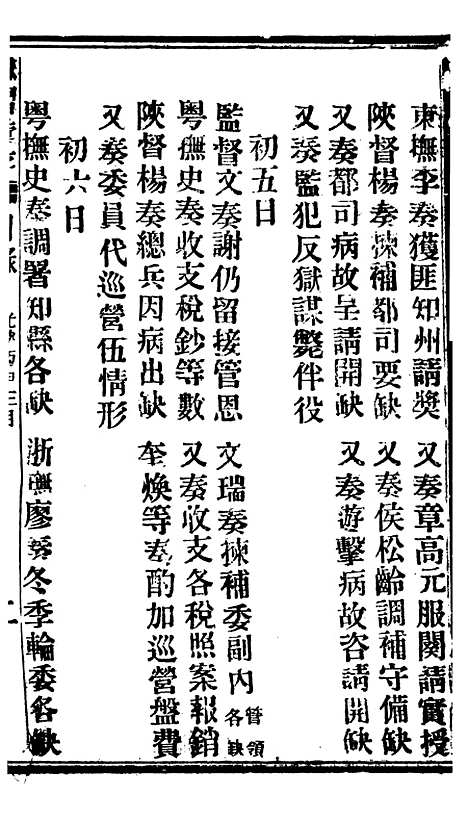 東撫李奏獲匪知州請獎　又奏章高元服闋請實授
陝督楊奏揀補都司要缺　又奏侯松齡調補守備缺
又奏都司病故呈請開缺　又奏遊擊病故咨請開缺
又奏監犯反獄謀斃伴役
初五日
監督文奏謝仍留接管恩　文瑞奏揀補委副內管領各缺
粵撫史奏收支稅鈔等數　又奏收支各稅照案報銷
陝督楊奏總兵因病出缺　奎煥等奏酌加巡營盤費
又奏委員代巡營伍情形
初六日
粵撫史奏調署知縣各缺　浙撫廖奏冬季輪委各缺
目錄　二